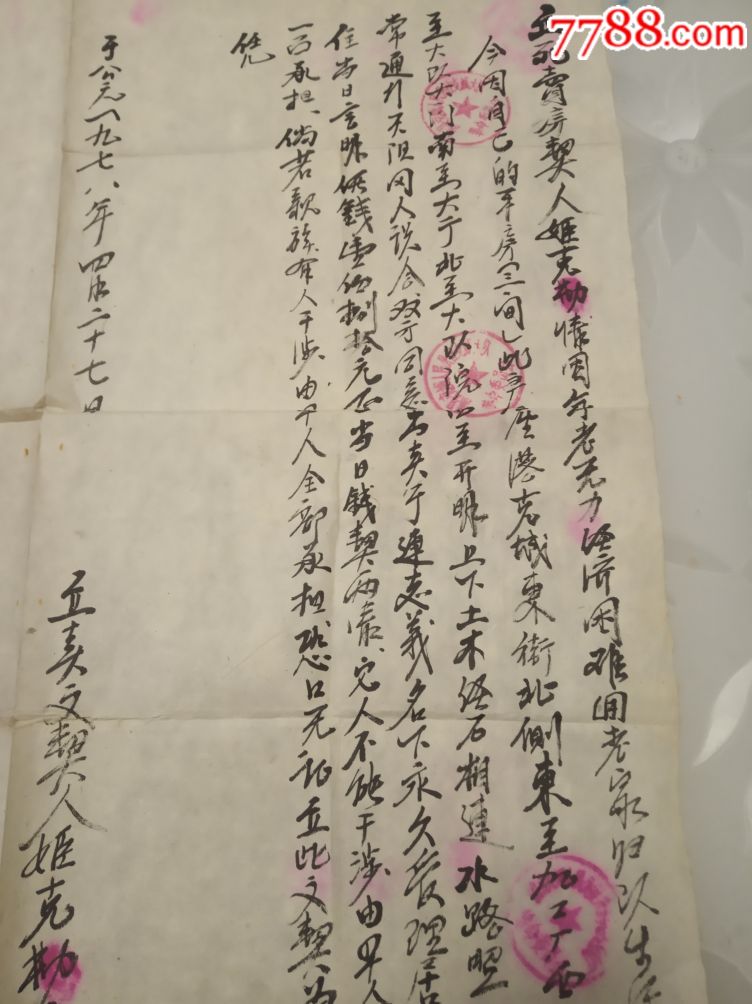 7788.com
立死賣房契人姬克勤情因年老无力经济困难回老家归队生活
今因自己的平房三间此房座落老城東街北侧東至加工厂西
至大队大门南至大厅北至大队院四至开明上下土木经石相連水路照
常通行无阻同人说合双方同意出卖于連志義名下永久管理居
住当日言明价錢壹佰捌拾元正当日錢契两清它人不能干涉由卑人
一面承担倘若親族有人干涉由卑人全部承担恐口无証立此文契为
凭
于公元一九七八年四月二十七日
立卖文契人姬克勤